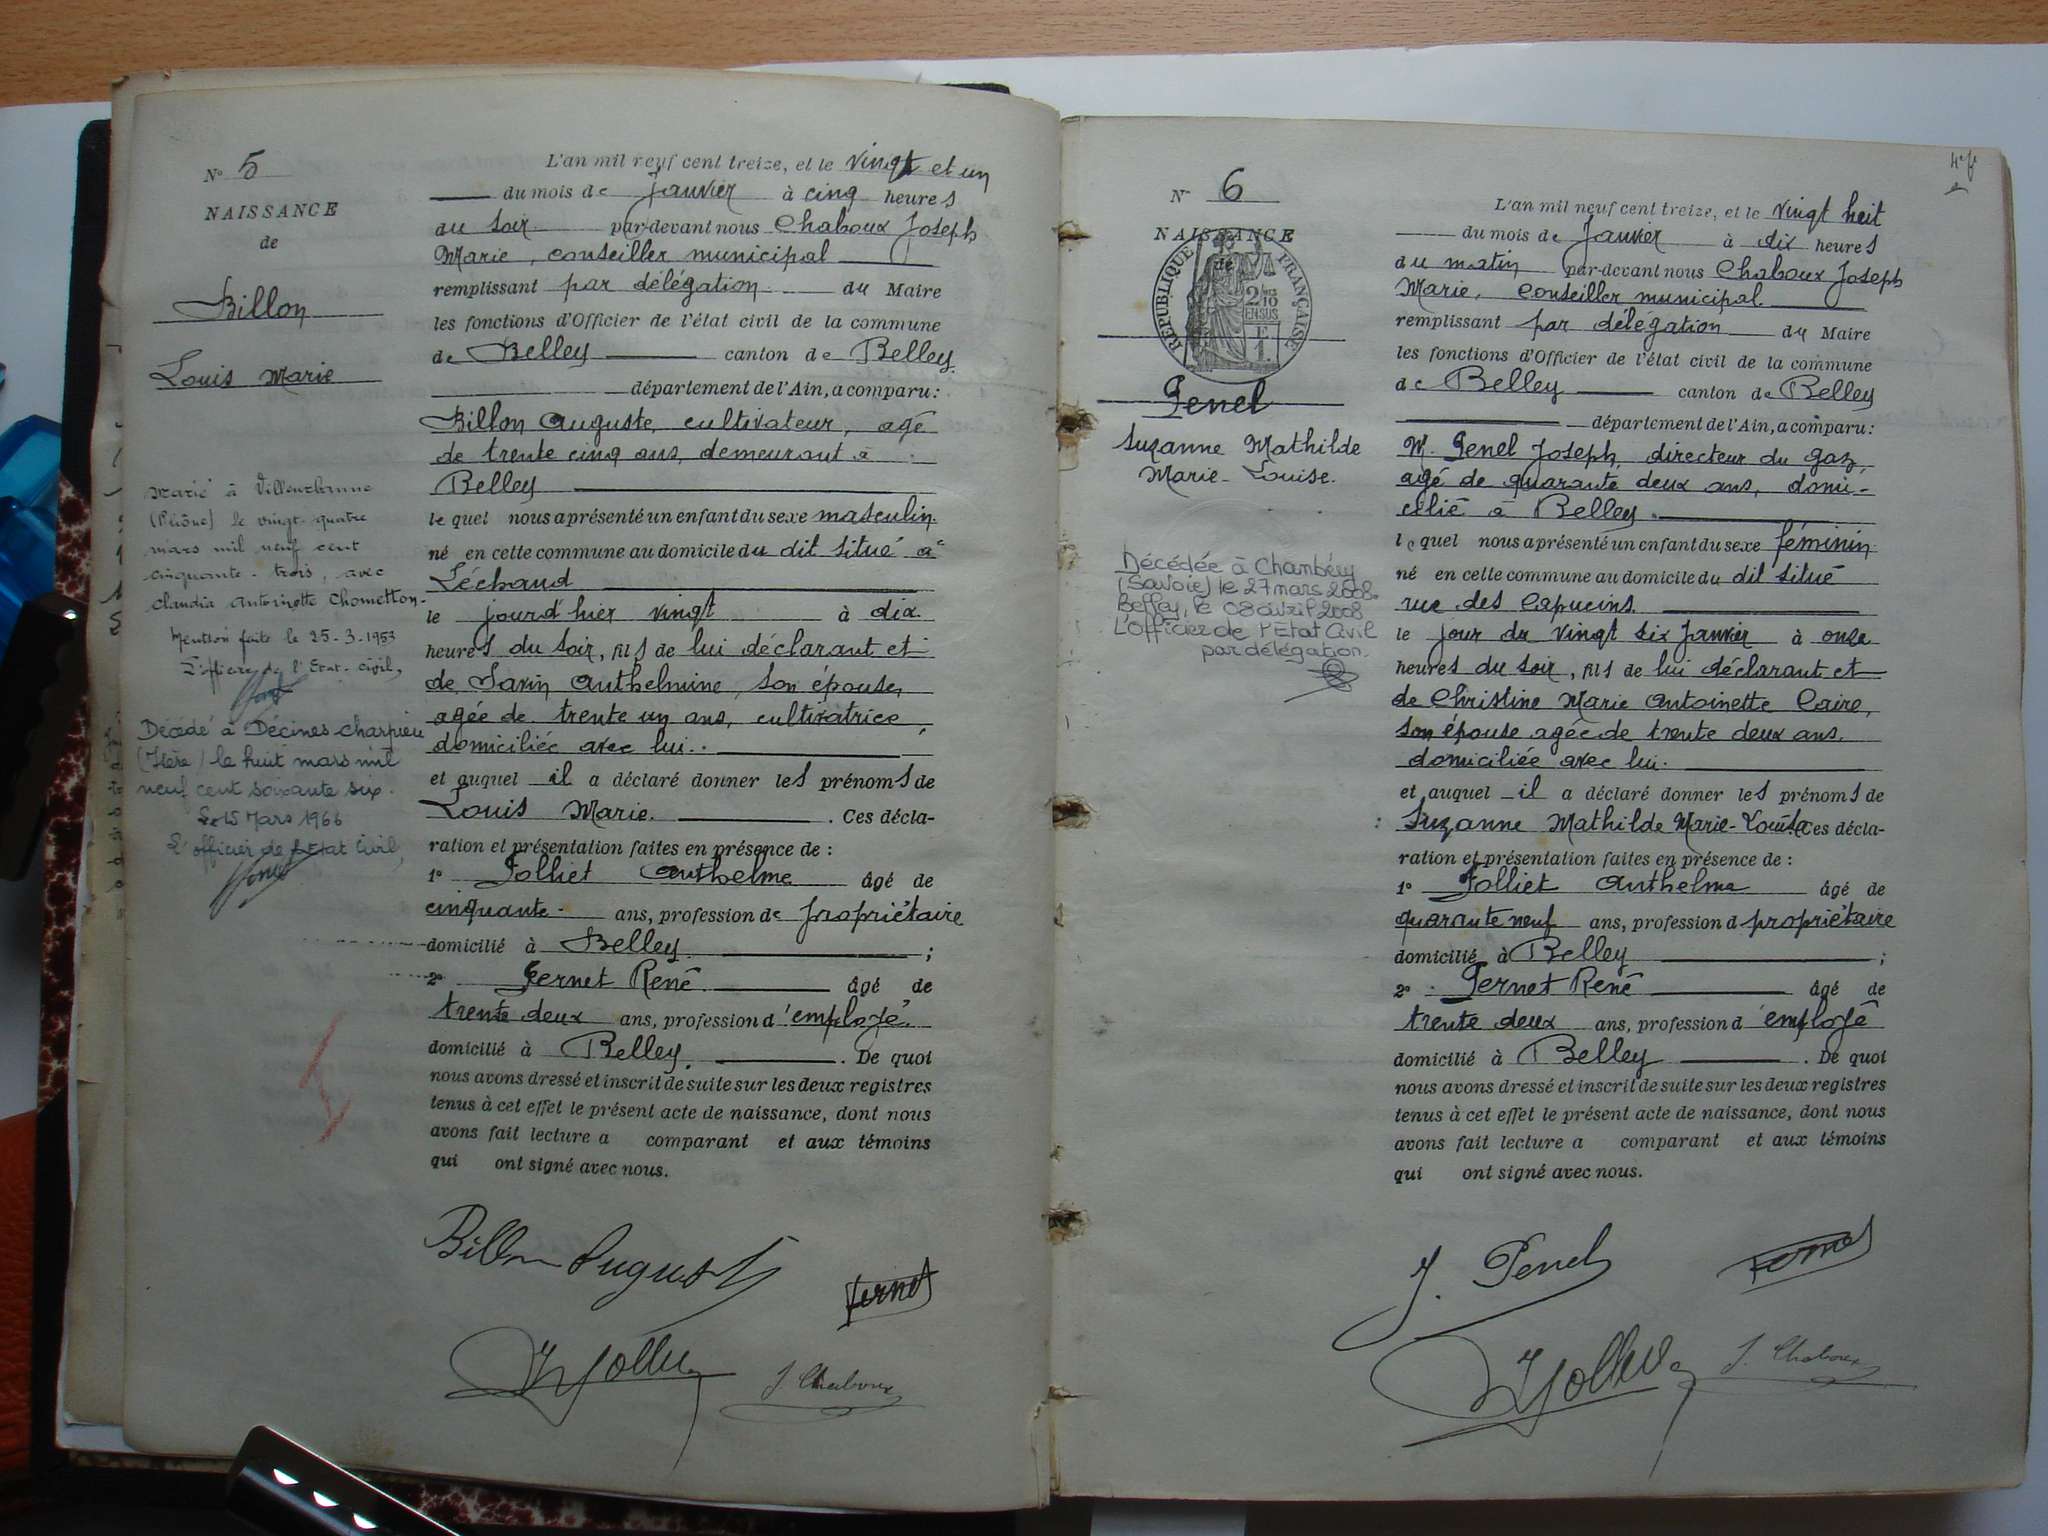 N° 5
NAISSANCE
de
Billon
Louis Marie
Marié à Villeurbanne
(Rhône) le vingt-quatre
mars mil neuf cent
cinquante-trois, avec
Claudia Antoinette Chometton.
Mention faite le 25-3-1953
L'officier de l'Etat-civil,
Décédé à Décines Charpieu
(Isère) le huit mars mil
neuf cent soixante six.
Le 15 Mars 1966
L'officier de l'Etat Civil,
L'an mil neuf cent treize, et le vingt et un
du mois de Janvier à cinq heures
du soir par-devant nous Chaboux Joseph
Marie, conseiller municipal
remplissant par délégation du Maire
les fonctions d'Officier de l'état civil de la commune
de Belley canton de Belley
département de l'Ain, a comparu :
Billon Auguste, cultivateur, agé
de trente cinq ans, demeurant à
Belley
lequel nous a présenté un enfant du sexe masculin
né en cette commune au domicile du dit situé à
Léchaud
le jour d'hier vingt à dix
heures du soir, fils de lui déclarant et
de Savin Anthelmine, son épouse,
agée de trente un ans, cultivatrice,
domiciliée avec lui.
et auquel il a déclaré donner les prénoms de
Louis Marie. Ces décla-
ration et présentation faites en présence de :
1° Jolliet Anthelme âgé de
cinquante ans, profession de propriétaire
domicilié à Belley ;
2° Fernet René âgé de
trente deux ans, profession d'employé
domicilié à Belley. De quoi
nous avons dressé et inscrit de suite sur les deux registres
tenus à cet effet le présent acte de naissance, dont nous
avons fait lecture a comparant et aux témoins
qui ont signé avec nous.
Billon Auguste
Fernet
Jolliet
J. Chaboux
4e f
N° 6
NAISSANCE
de
RÉPUBLIQUE FRANÇAISE
2/10
EN SUS
Penel
Suzanne Mathilde
Marie-Louise.
Décédée à Chambéry
(Savoie) le 27 mars 2008.
Belley, le 08 avril 2008
L'officier de l'Etat Civil
par délégation.
L'an mil neuf cent treize, et le vingt heit
du mois de Janvier à dix heures
du matin par-devant nous Chaboux Joseph
Marie, conseiller municipal
remplissant par délégation du Maire
les fonctions d'Officier de l'état civil de la commune
de Belley canton de Belley
département de l'Ain, a comparu :
M. Penel Joseph, directeur du gaz,
agé de quarante deux ans, domi-
cilié à Belley.
lequel nous a présenté un enfant du sexe féminin
né en cette commune au domicile du dit situé
rue des Capucins
le jour du vingt six Janvier à onze
heures du soir, fils de lui déclarant et
de Christine Marie Antoinette Caire,
son épouse agée de trente deux ans,
domiciliée avec lui.
et auquel il a déclaré donner les prénoms de
Suzanne Mathilde Marie-Louise Ces décla-
ration et présentation faites en présence de :
1° Jolliet Anthelme âgé de
quarante neuf ans, profession d propriétaire
domicilié à Belley ;
2° Fernet René âgé de
trente deux ans, profession d'employé
domicilié à Belley. De quoi
nous avons dressé et inscrit de suite sur les deux registres
tenus à cet effet le présent acte de naissance, dont nous
avons fait lecture a comparant et aux témoins
qui ont signé avec nous.
J. Penel
Fernet
Jolliet
J. Chaboux